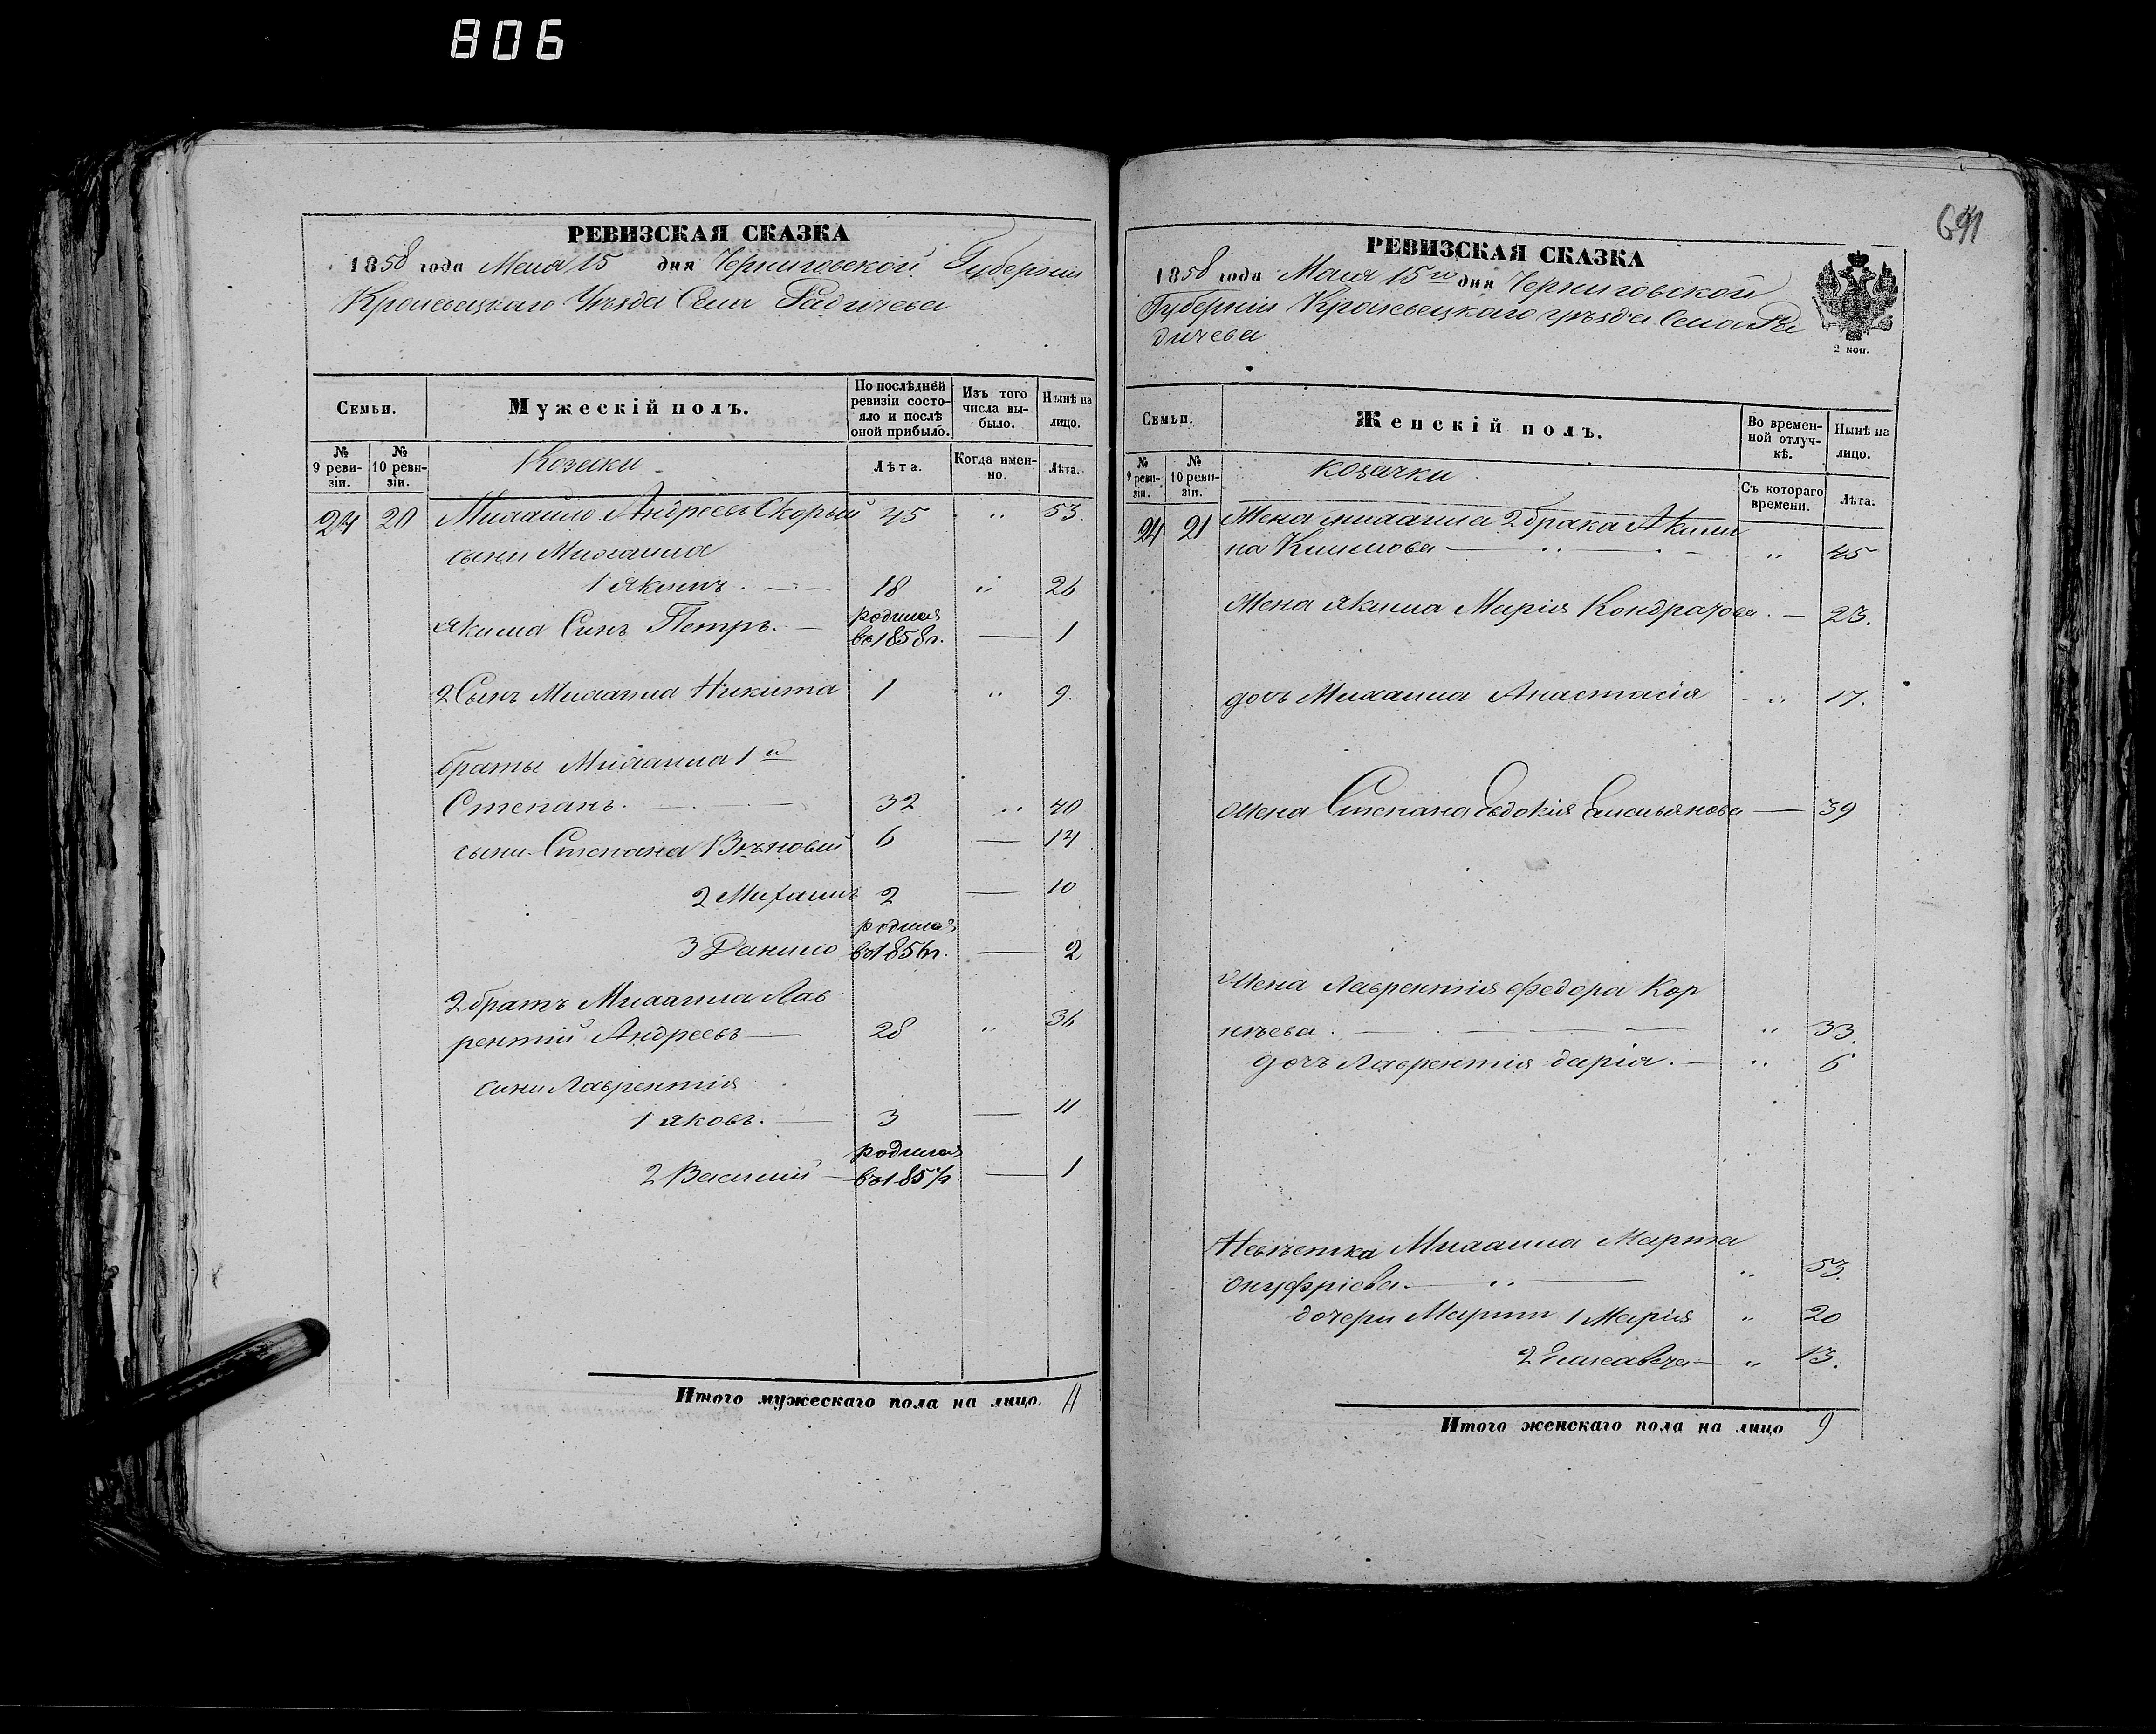 806
РЕВИЗСКАЯ СКАЗКА
1858 года Мая 15 дня Черниговской Губерніи
Кролевецкаго Уѣзда Села Радичева
Семьи.
Мужескій полъ.
По послѣдней ревизіи состояло и послѣ оной прибыло.
Изъ того числа выбыло.
Нынѣ на лицо.
№ 9 ревизіи.
№ 10 ревизіи.
Козаки
Лѣта.
Когда именно.
Лѣта.
24 20 Михаило Андреевъ Скорый 45 " 53.
сыни Михаила
1 Якимъ. — 18 " 26
Якима Синъ Петръ. — родился въ 1858 г. — 1
2 Сынъ Михаила Никита 1 " 9.
браты Михаила 1й
Степанъ. — 32 " 40
сыни Степана 1 Зѣновій 6 — 14
2 Михаилъ 2 — 10
3 Данило родился въ 1856 г. — 2
2 братъ Михаила Лав
рентій Андреевъ — 28 " 36
сини Лаврентія
1 Яковъ. — 3 — 11
2 Василій — родился въ 1857 г. — 1
Итого мужескаго пола на лицо. 11
641
РЕВИЗСКАЯ СКАЗКА
1858 года Мая 15го дня Черниговской
Губерніи Кролевецкаго уѣзда Села Ра
дичева
2 коп.
Семьи.
Женскій полъ.
Во временной отлучкѣ.
Нынѣ на лицо.
№ 9 ревизіи.
№ 10 ревизіи.
козачки
Съ котораго времени.
Лѣта.
24 21 Жена михаила 2 брака Акили
на Климова — " 45
Жена Якима Марія Кондратова. — 23.
дочь Михаила Анастасія " 17.
жена Степана Евдокія Емельянова — 39
Жена Лаврентія Федора Кор
нѣева. — " 33.
дочь Лаврентія дарія. — " 6
Невѣстка Михаила Марта
Онуфріева — " 53.
дочери Марти 1 Марія " 20
2 Елисавета — " 13.
Итого женскаго пола на лицо 9